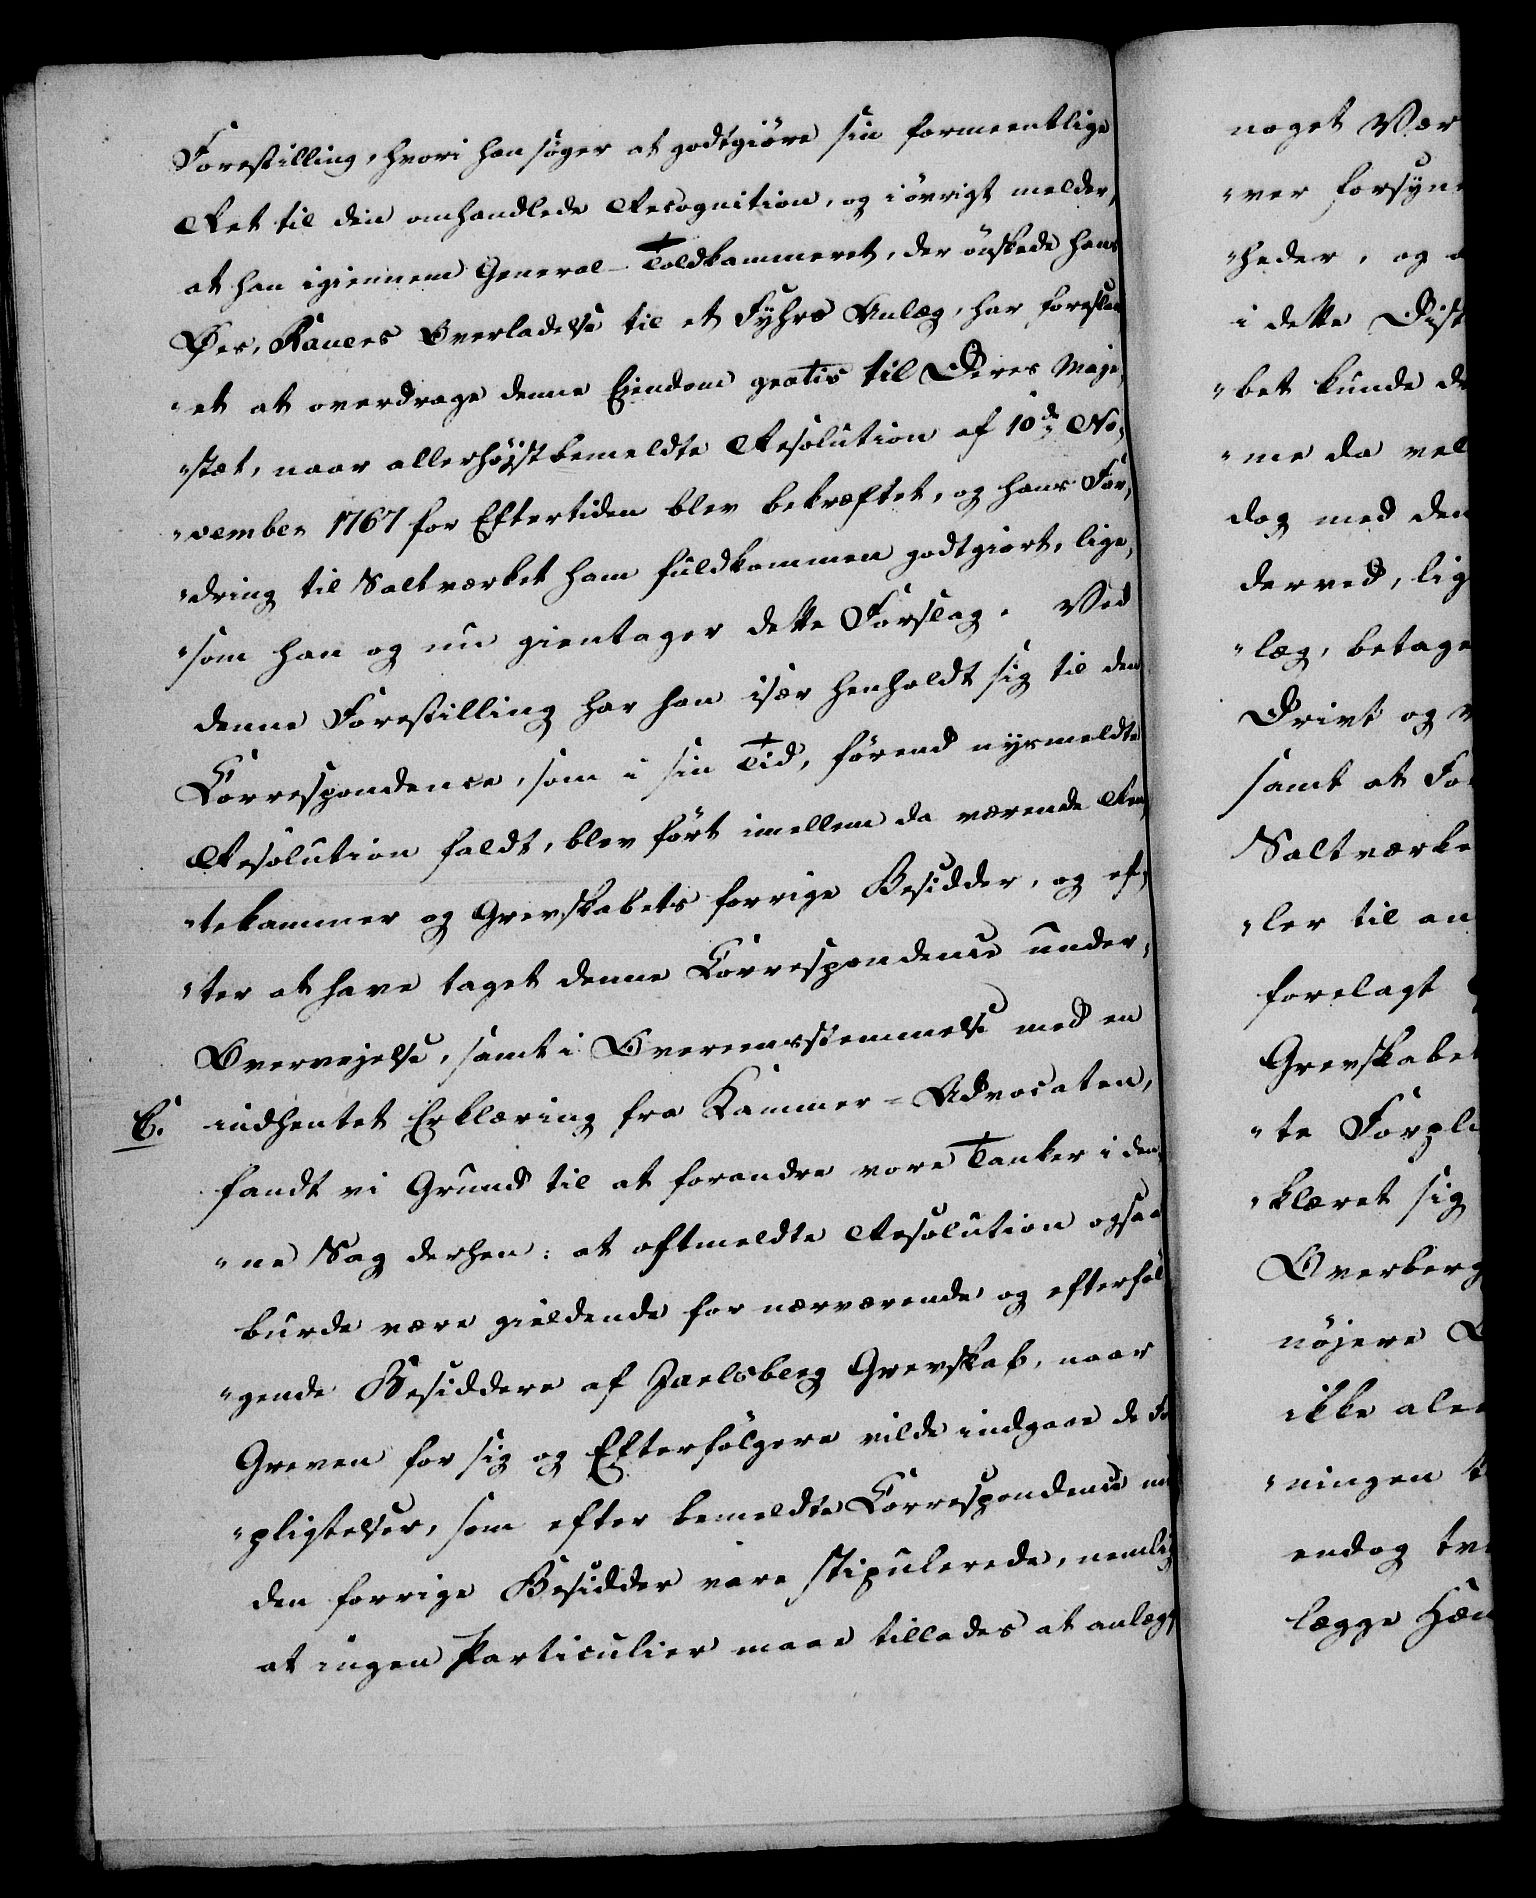 Forestilling, hvori han søger at godtgiöre sin formeentlige
Ret til den omhandlede Recognition, og i övrigt melder,
at han igiennem General-Toldkammeret, der önskede hans
Øes, Raaers Overladelse til et Fyhrs Anlæg, har foreslaa
"et at overdrage denne Eiendom gratis til Deres Maje,
"stæt, naar allerhøjstbemeldte Resolution af 10de No,
"vember 1767 for Eftertiden blev bekræftet, og hans For,
"dring til Saltværket ham fuldkommen godtgiort, lige,
"som han og nu gientager dette Forslag. Ved
denne Forestilling har han især henholdt sig til den
Correspondence, som i sin Tid, förend nysmeldte
Resolution faldt, blev fört imellem da værende Ren,
"tekammer og Grevskabets forrige Besidder, og ef,
"ter at have taget denne Correspondence under,
Overvejelse, samt i Overeensstemmelse med en
C. indhentet Erklæring fra Kammer-Advocaten,
fandt vi Grund til at forandre vore Tanker i den,
"ne Sag derhen: at oftmeldte Resolution ogsaa
burde være gieldende for nærværende og efterföl
"gende Besiddere af Jarlsberg Grevskab, naar
Greven for sig og Efterfölgere vilde indgaae de For
"pligtelser, som efter bemeldte Correspondence med
den forrige Besidder vare stipulerede, nemlig
at ingen Particulier maae tillades at anlægge
noget Vær
"ver forsyne
"heder, og a
i dette Dist
"bet kunde de
"me da vel
dog med den
derved, lig
"læg, betage
Drivt og v
samt at For
Saltværke
"ler til an
forelagt
Grevskabet
"te Forpli
"klæret sig
Overberg
nöjere B
ikke alee
"ningen t
endog tve
lægge Hæn